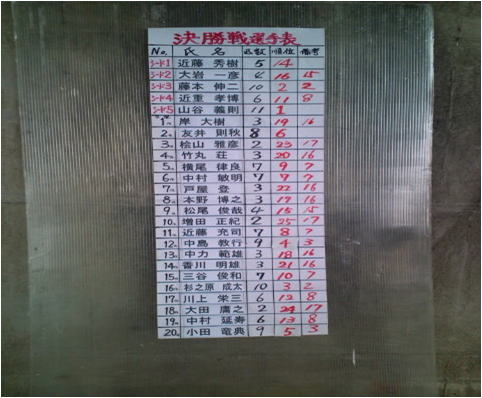 決勝戦選手表
No. 氏名 匹数 順位 備考
シード1 近藤 秀樹 5 14
シード2 大岩 一彦 4 16 15
シード3 藤本 伸二 10 2 2
シード4 近重 孝博 6 11 8
シード5 山谷 義則 11 1
1 岸 大樹 3 19 16
2 友井 則秋 8 6
3 桧山 雅彦 2 23 17
4 竹丸 荘 3 20 16
5 横尾 律良 7 9 7
6 中村 敏明 7 7 7
7 戸屋 登 3 22 16
8 本野 博之 3 17 16
9 松尾 俊哉 4 15 15
10 増田 正紀 2 25 17
11 近藤 充司 7 8 7
12 中島 教行 9 4 3
13 中力 範雄 3 18 16
14 香川 明雄 3 21 16
15 三谷 俊和 7 10 7
16 杉之原 成太 10 3 2
17 川上 栄三 6 12 8
18 大田 庸之 2 24 17
19 中村 延寿 6 13 8
20 小田 竜典 9 5 3